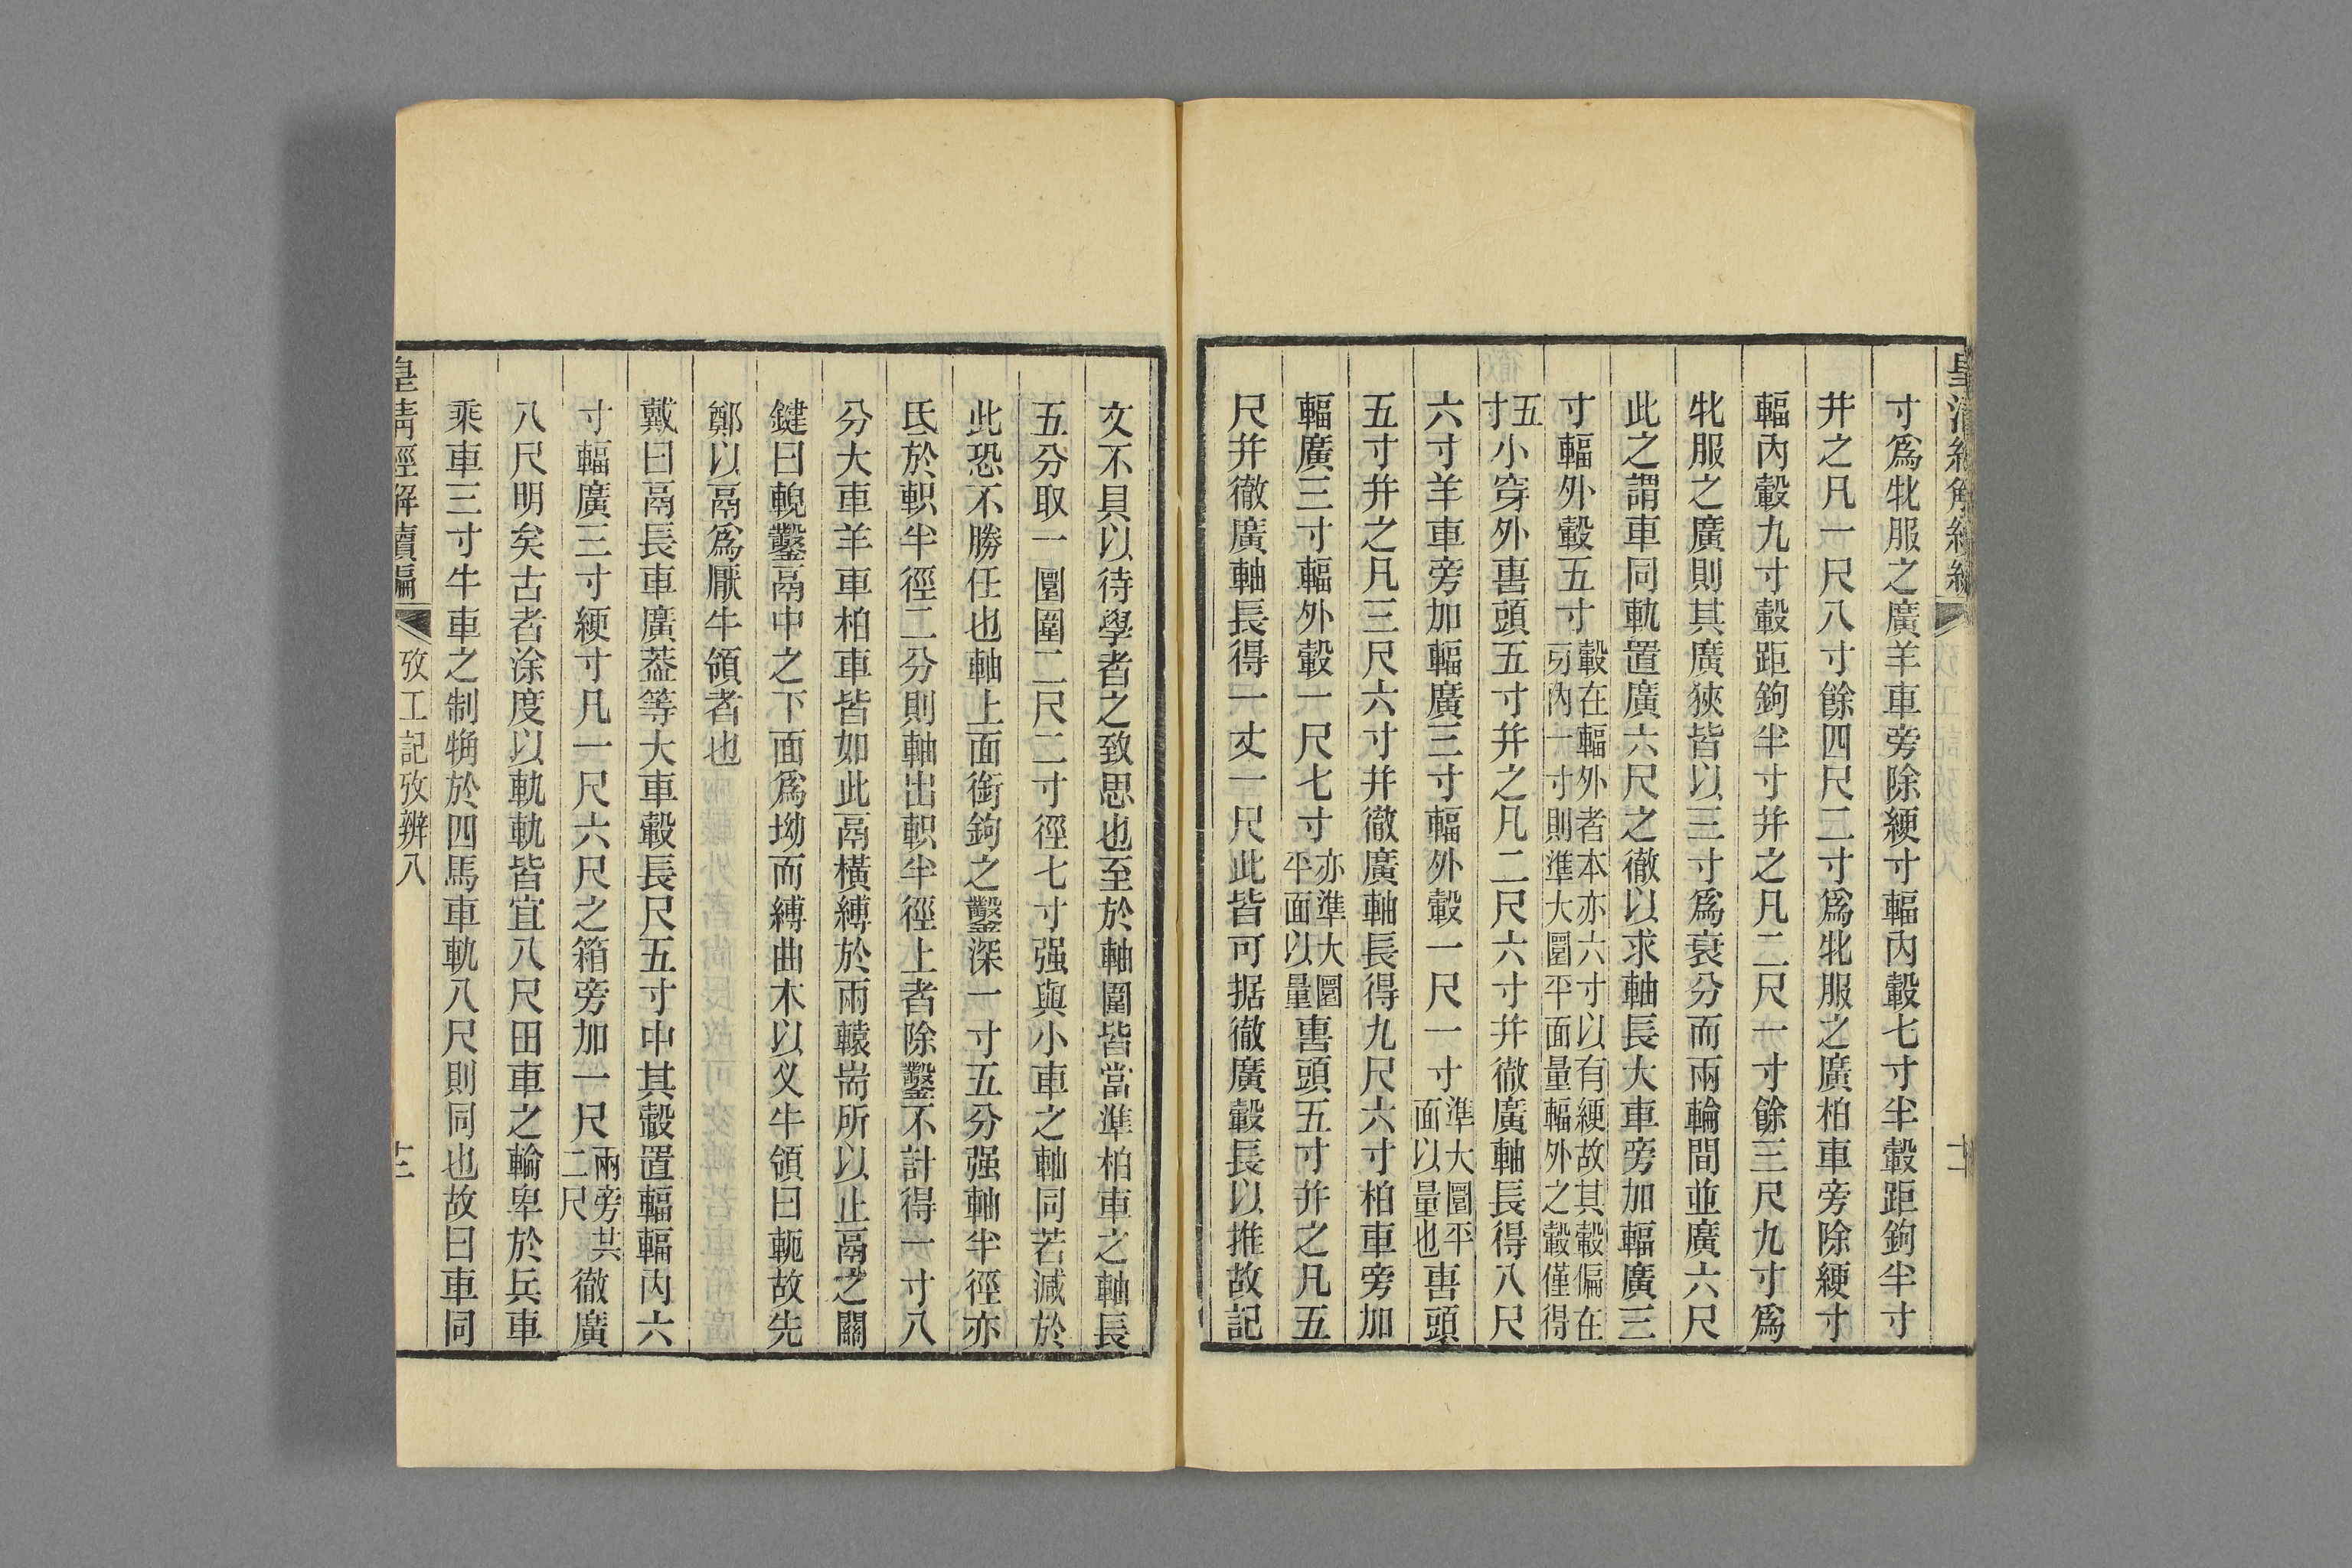 寸爲牝服之廣羊車旁除綆寸輻內轂七寸半轂距鉤半寸
并之凡一尺八寸餘四尺二寸爲牝服之廣柏車旁除綆寸
輻內轂九寸轂距鉤半寸并之凡二尺一寸餘三尺九寸爲
牝服之廣則其廣狹皆以三寸爲衰分而兩輪間並廣六尺
此之謂車同軌置廣六尺之徹以求軸長大車旁加輻廣三
寸輻外轂五寸轂在輻外者本亦六寸以有綆故其轂偏在
內一寸則準大圍平面量輻外之轂僅得
五寸小穿外軎頭五寸并之凡二尺六寸并徹廣軸長得八尺
六寸羊車旁加輻廣三寸輻外轂一尺一寸準大圍平面以量也軎頭
五寸并之凡三尺六寸并徹廣軸長得九尺六寸柏車旁加
輻廣三寸輻外轂一尺七寸亦準大圍平面以量軎頭五寸并之凡五
尺并徹廣軸長得一丈一尺此皆可据徹廣轂長以推故記
文不具以待學者之致思也至於軸圍皆當準柏車之軸長
五分取一圍圍二尺二寸徑七寸强與小車之軸同若減於
此恐不勝任也軸上面銜鉤之鑿深一寸五分强軸半徑亦
氐於軹半徑二分則軸出軹半徑上者除鑿不計得一寸八
分大車羊車柏車皆如此鬲橫縛於兩轅耑所以止鬲之關
鍵曰輗鑿鬲中之下面爲坳而縛曲木以义牛領曰軛故先
鄭以鬲爲厭牛領者也
戴曰鬲長車廣葢等大車轂長尺五寸中其轂置輻輻內六
寸輻廣三寸綆寸凡一尺六尺之箱旁加一尺兩旁共二尺徹廣
八尺明矣古者涂度以軌軌皆宜八尺田車之輪卑於兵車
乘車三寸牛車之制觕於四馬車軌八尺則同也故曰車同
皇淸經解續編 攷工記攷辨八 十二